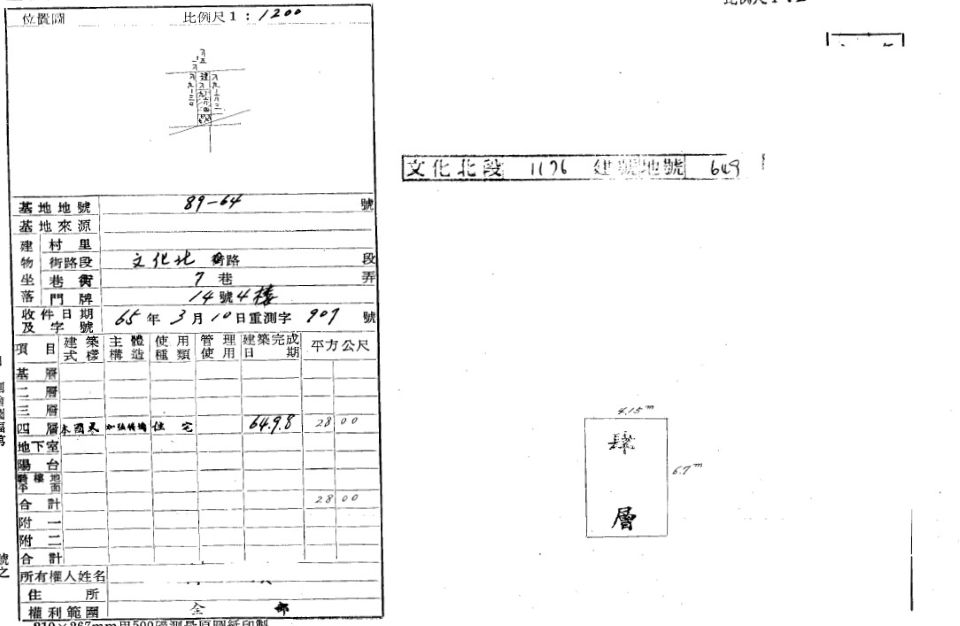 位置圖 比例尺1：1200
文化北段 1176 建號地號 649
基地地號 89-64 號
基地來源
建物坐落 村里
街路段 文化北 街路 段
巷衖 7 巷 弄
門牌 14號4樓
收件日期及字號 65年3月10日重測字 907 號
項目 建築式樣 主體構造 使用種類 管理使用 建築完成日期 平方公尺
基層
二層
三層
四層 本國式 加強磚造 住宅 64.9.8 28 00
地下室
陽台
騎樓地平面
合計 28 00
附一
附二
合計
所有權人姓名
住所
權利範圍 全部
4.15m
肆
6.7m
層